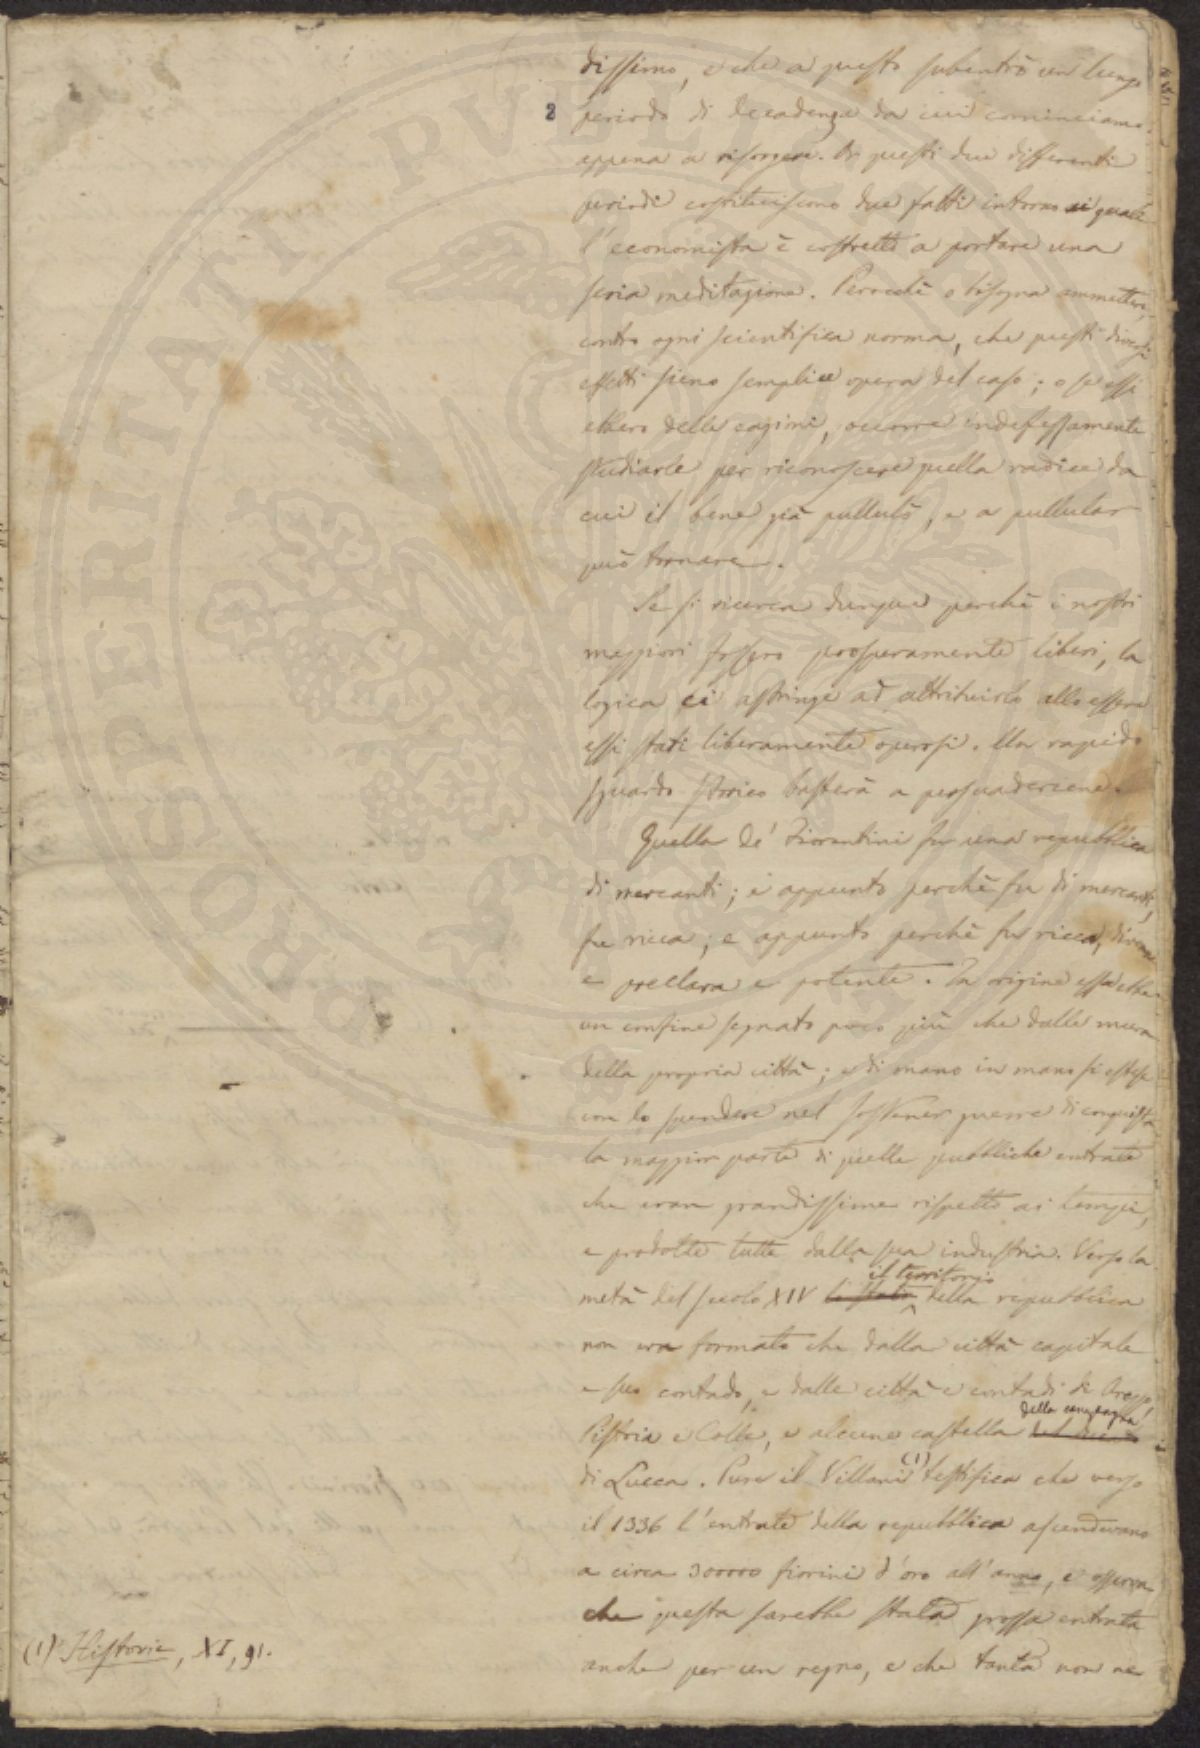 dissimo, e che a questo subentrò un lungo
2
periodo di decadenza da cui cominciamo
appena a risorgere. Or questi due differenti
periodi costituiscono due fatti intorno ai quali
l'economista è costretto a portare una
seria meditazione. Perocchè o bisogna ammettere,
contro ogni scientifica norma, che questi diversi
effetti sieno semplice opera del caso; o se essi
ebbero delle cagioni, occorre indefessamente
studiarle per riconoscere quella radice da
cui il bene già pullulò, e a pullular
può tornare.
Se si ricerca dunque perchè i nostri
maggiori fossero prosperamente liberi, la
logica ci astringe ad attribuirlo allo essere
essi stati liberamente operosi. Un rapido
sguardo storico basterà a persuadercene.
Quella de' Fiorentini fu una repubblica
di mercanti; e appunto perchè fu di mercanti,
fu ricca; e appunto perchè fu ricca, divenne
e preclara e potente. In origine essa ebbe
un confine segnato poco più che dalle mura
della propria città; e di mano in mano si estese
con lo spendere nel sostener guerre di conquista
la maggior parte di quelle pubbliche entrate
che eran grandissime rispetto ai tempi,
e prodotte tutte dalla sua industria. Verso la
il territorio
metà del secolo XIV lo stato della repubblica
non era formato che dalla città capitale
e suo contado, e dalle città e contadi di Arezzo,
della campagna
Pistoia e Colle, e alcune castella del
di Lucca. Pure il Villani (1) testifica che verso
il 1336 l'entrate della repubblica ascendevano
a circa 300000 fiorini d'oro all'anno, e osserva
che questa sarebbe stata grossa entrata
anche per un regno, e che tanta non ne
(1) Historie, XI, 91.
PROSPERITATI PVBLICAE